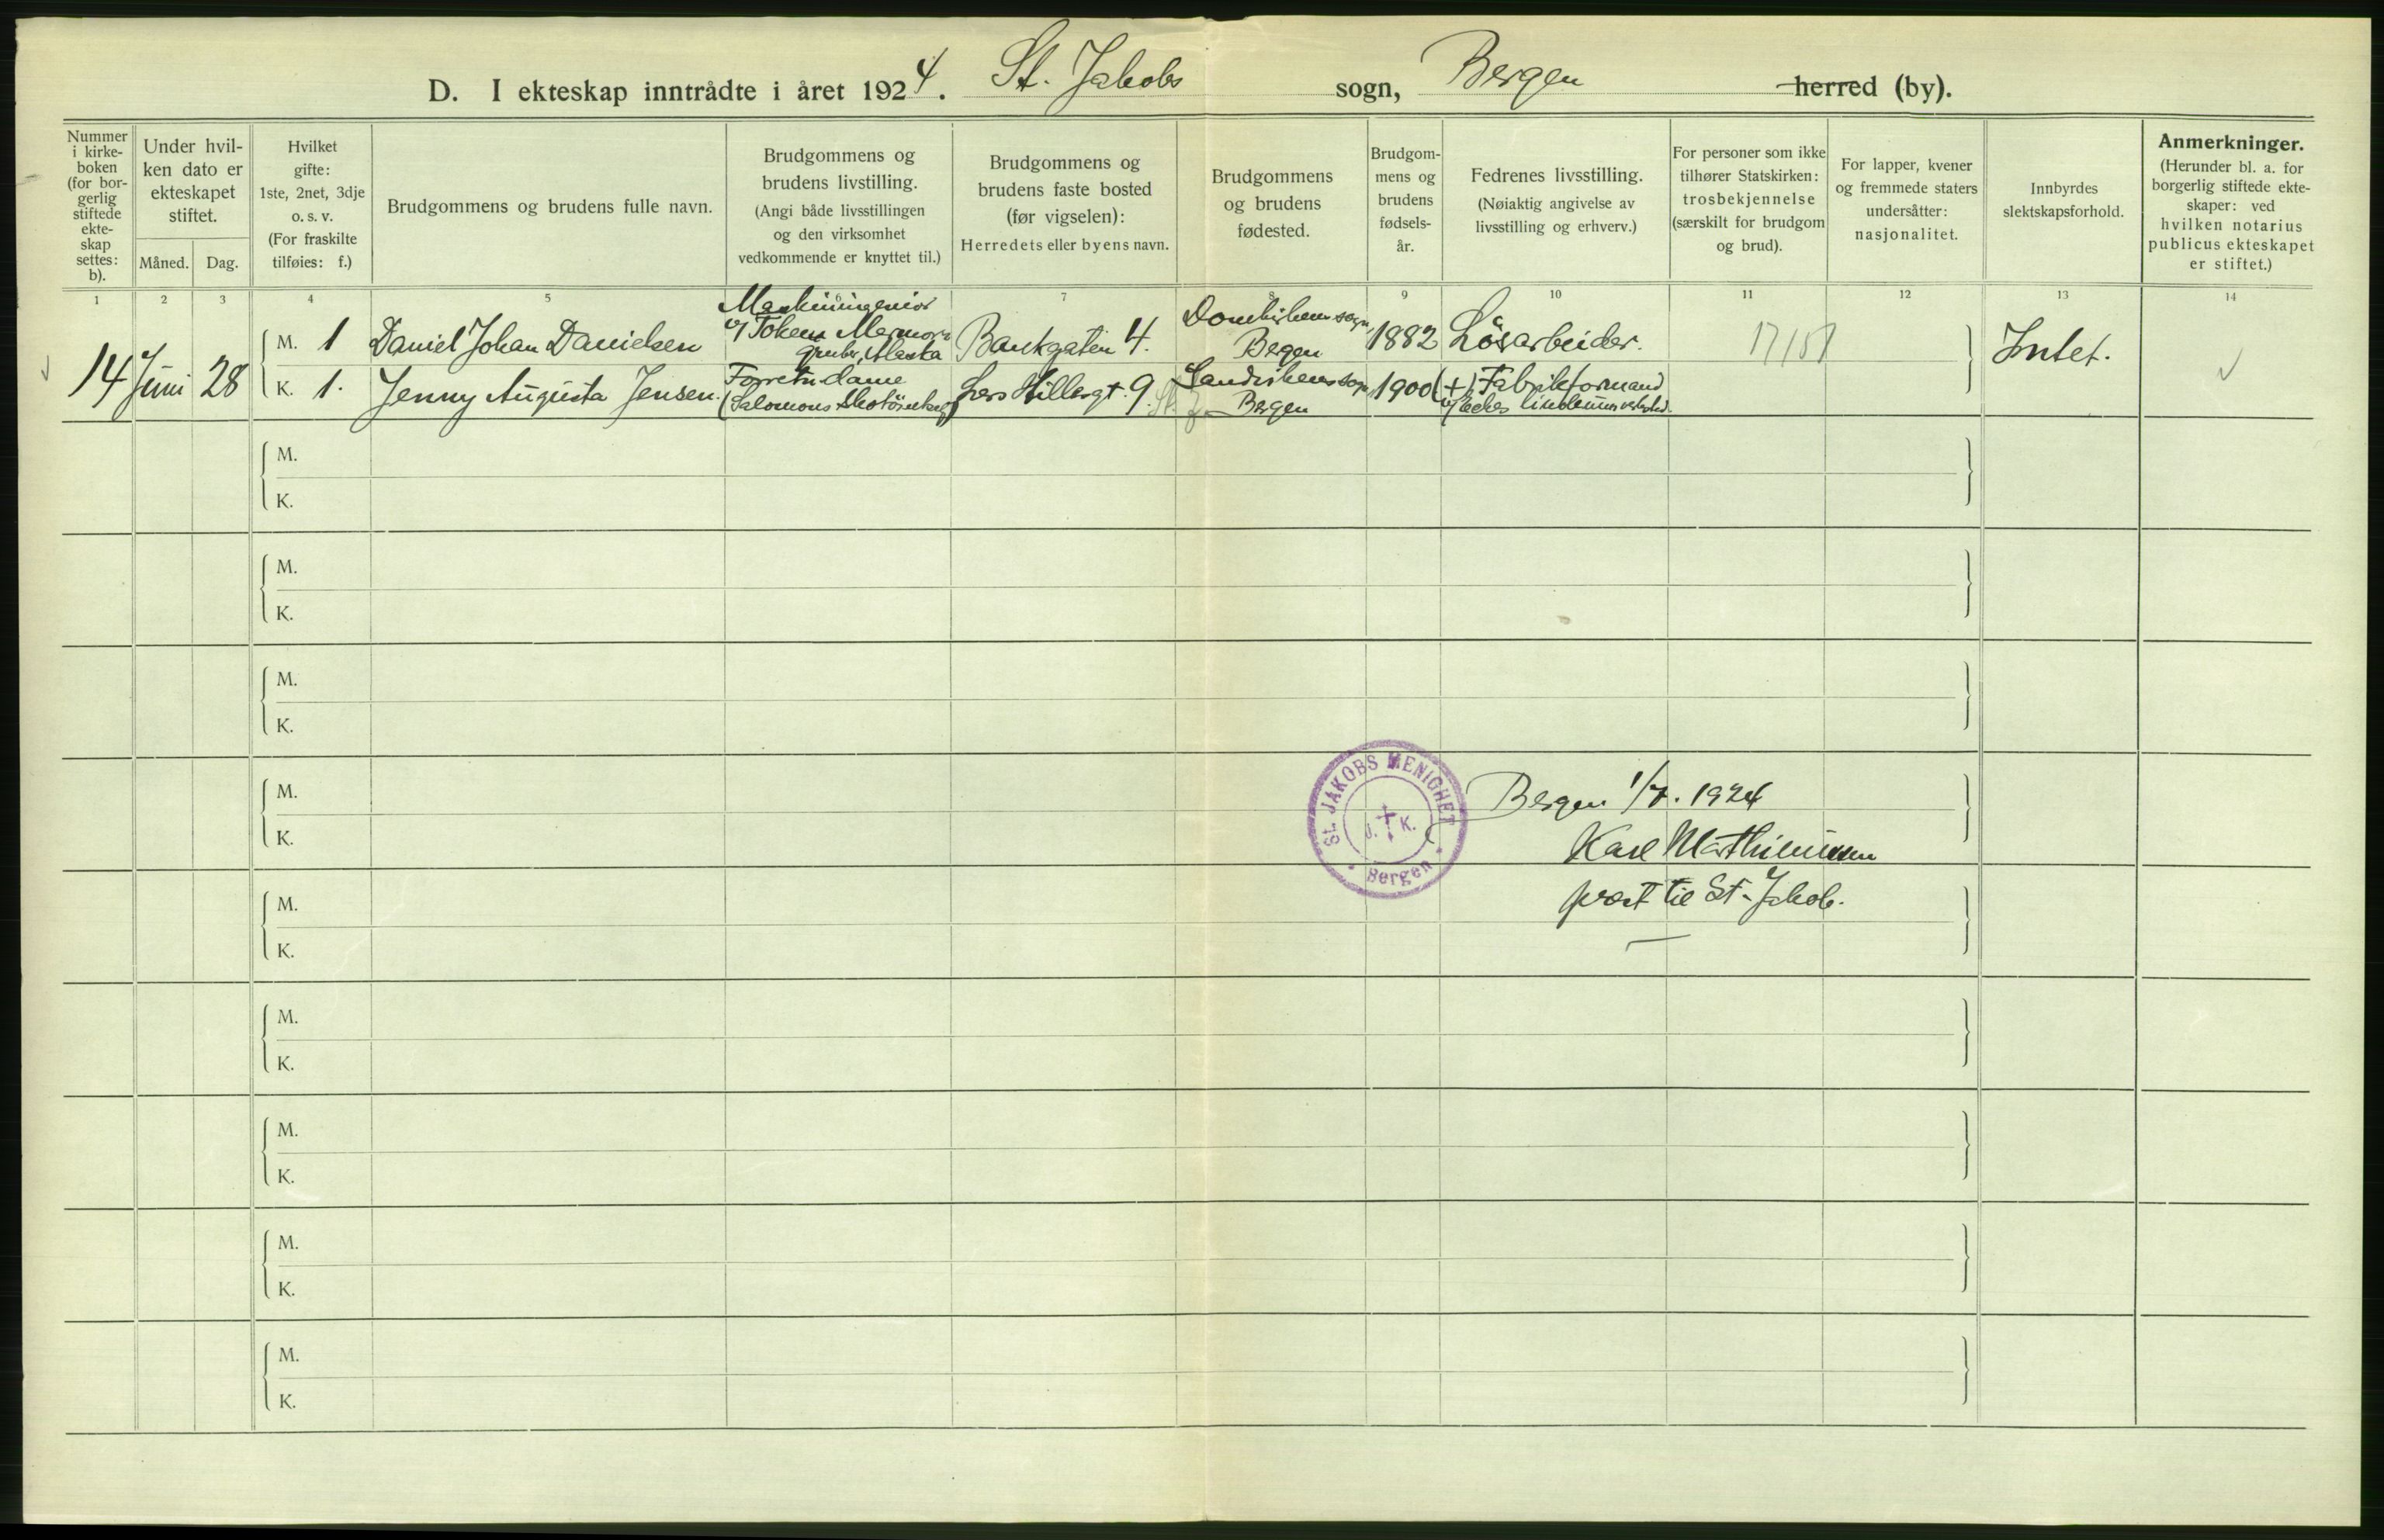 D. I ekteskap inntrådte i året 1924. St. Jakobs sogn, Bergen herred (by).
Nummer
i kirke-
boken
(for bor-
gerlig
stiftede
ekte-
skap
settes:
b).
Under hvil-
ken dato er
ekteskapet
stiftet.
Måned.
Dag.
Hvilket
gifte:
1ste, 2net, 3dje
o. s. v.
(For fraskilte
tilføies: f.)
Brudgommens og brudens fulle navn.
Brudgommens og
brudens livstilling.
(Angi både livsstillingen
og den virksomhet
vedkommende er knyttet til.)
Brudgommens og
brudens faste bosted
(før vigselen):
Herredets eller byens navn.
Brudgommens
og brudens
fødested.
Brudgom-
mens og
brudens
fødsels-
år.
Fedrenes livsstilling.
(Nøiaktig angivelse av
livsstilling og erhverv.)
For personer som ikke
tilhører Statskirken:
trosbekjennelse
(særskilt for brudgom
og brud).
For lapper, kvener
og fremmede staters
undersåtter:
nasjonalitet.
Innbyrdes
slektskapsforhold.
Anmerkninger.
(Herunder bl. a. for
borgerlig stiftede ekte-
skaper: ved
hvilken notarius
publicus ekteskapet
er stiftet.)
1 2 3 4 5 7 8 9 10 11 12 13 14
14 Juni 28
M. 1 Daniel Johan Danielsen
Maskiningeniør
v/ Tokens
gruber, Alaska
Bankgaten 4.
Domkirkens sogn,
Bergen
1882
Løsarbeider.
17/151
Intet.
K. 1. Jenny Augusta Jensen.
Forretn.dame
(Salomons Skotøimkag)
Lars Hillesgt. 9.
Sandvikens sogn
Bergen
1900
(+) Fabrikformand
M.
K.
M.
K.
M.
K.
M.
K.
M.
K.
M.
K.
M.
K.
M.
K.
M.
K.
ST. JAKOBS MENIGHET
J. K.
Bergen
Bergen 1/7. 1924
Karl Mathiessen
prest til St. Jakob.